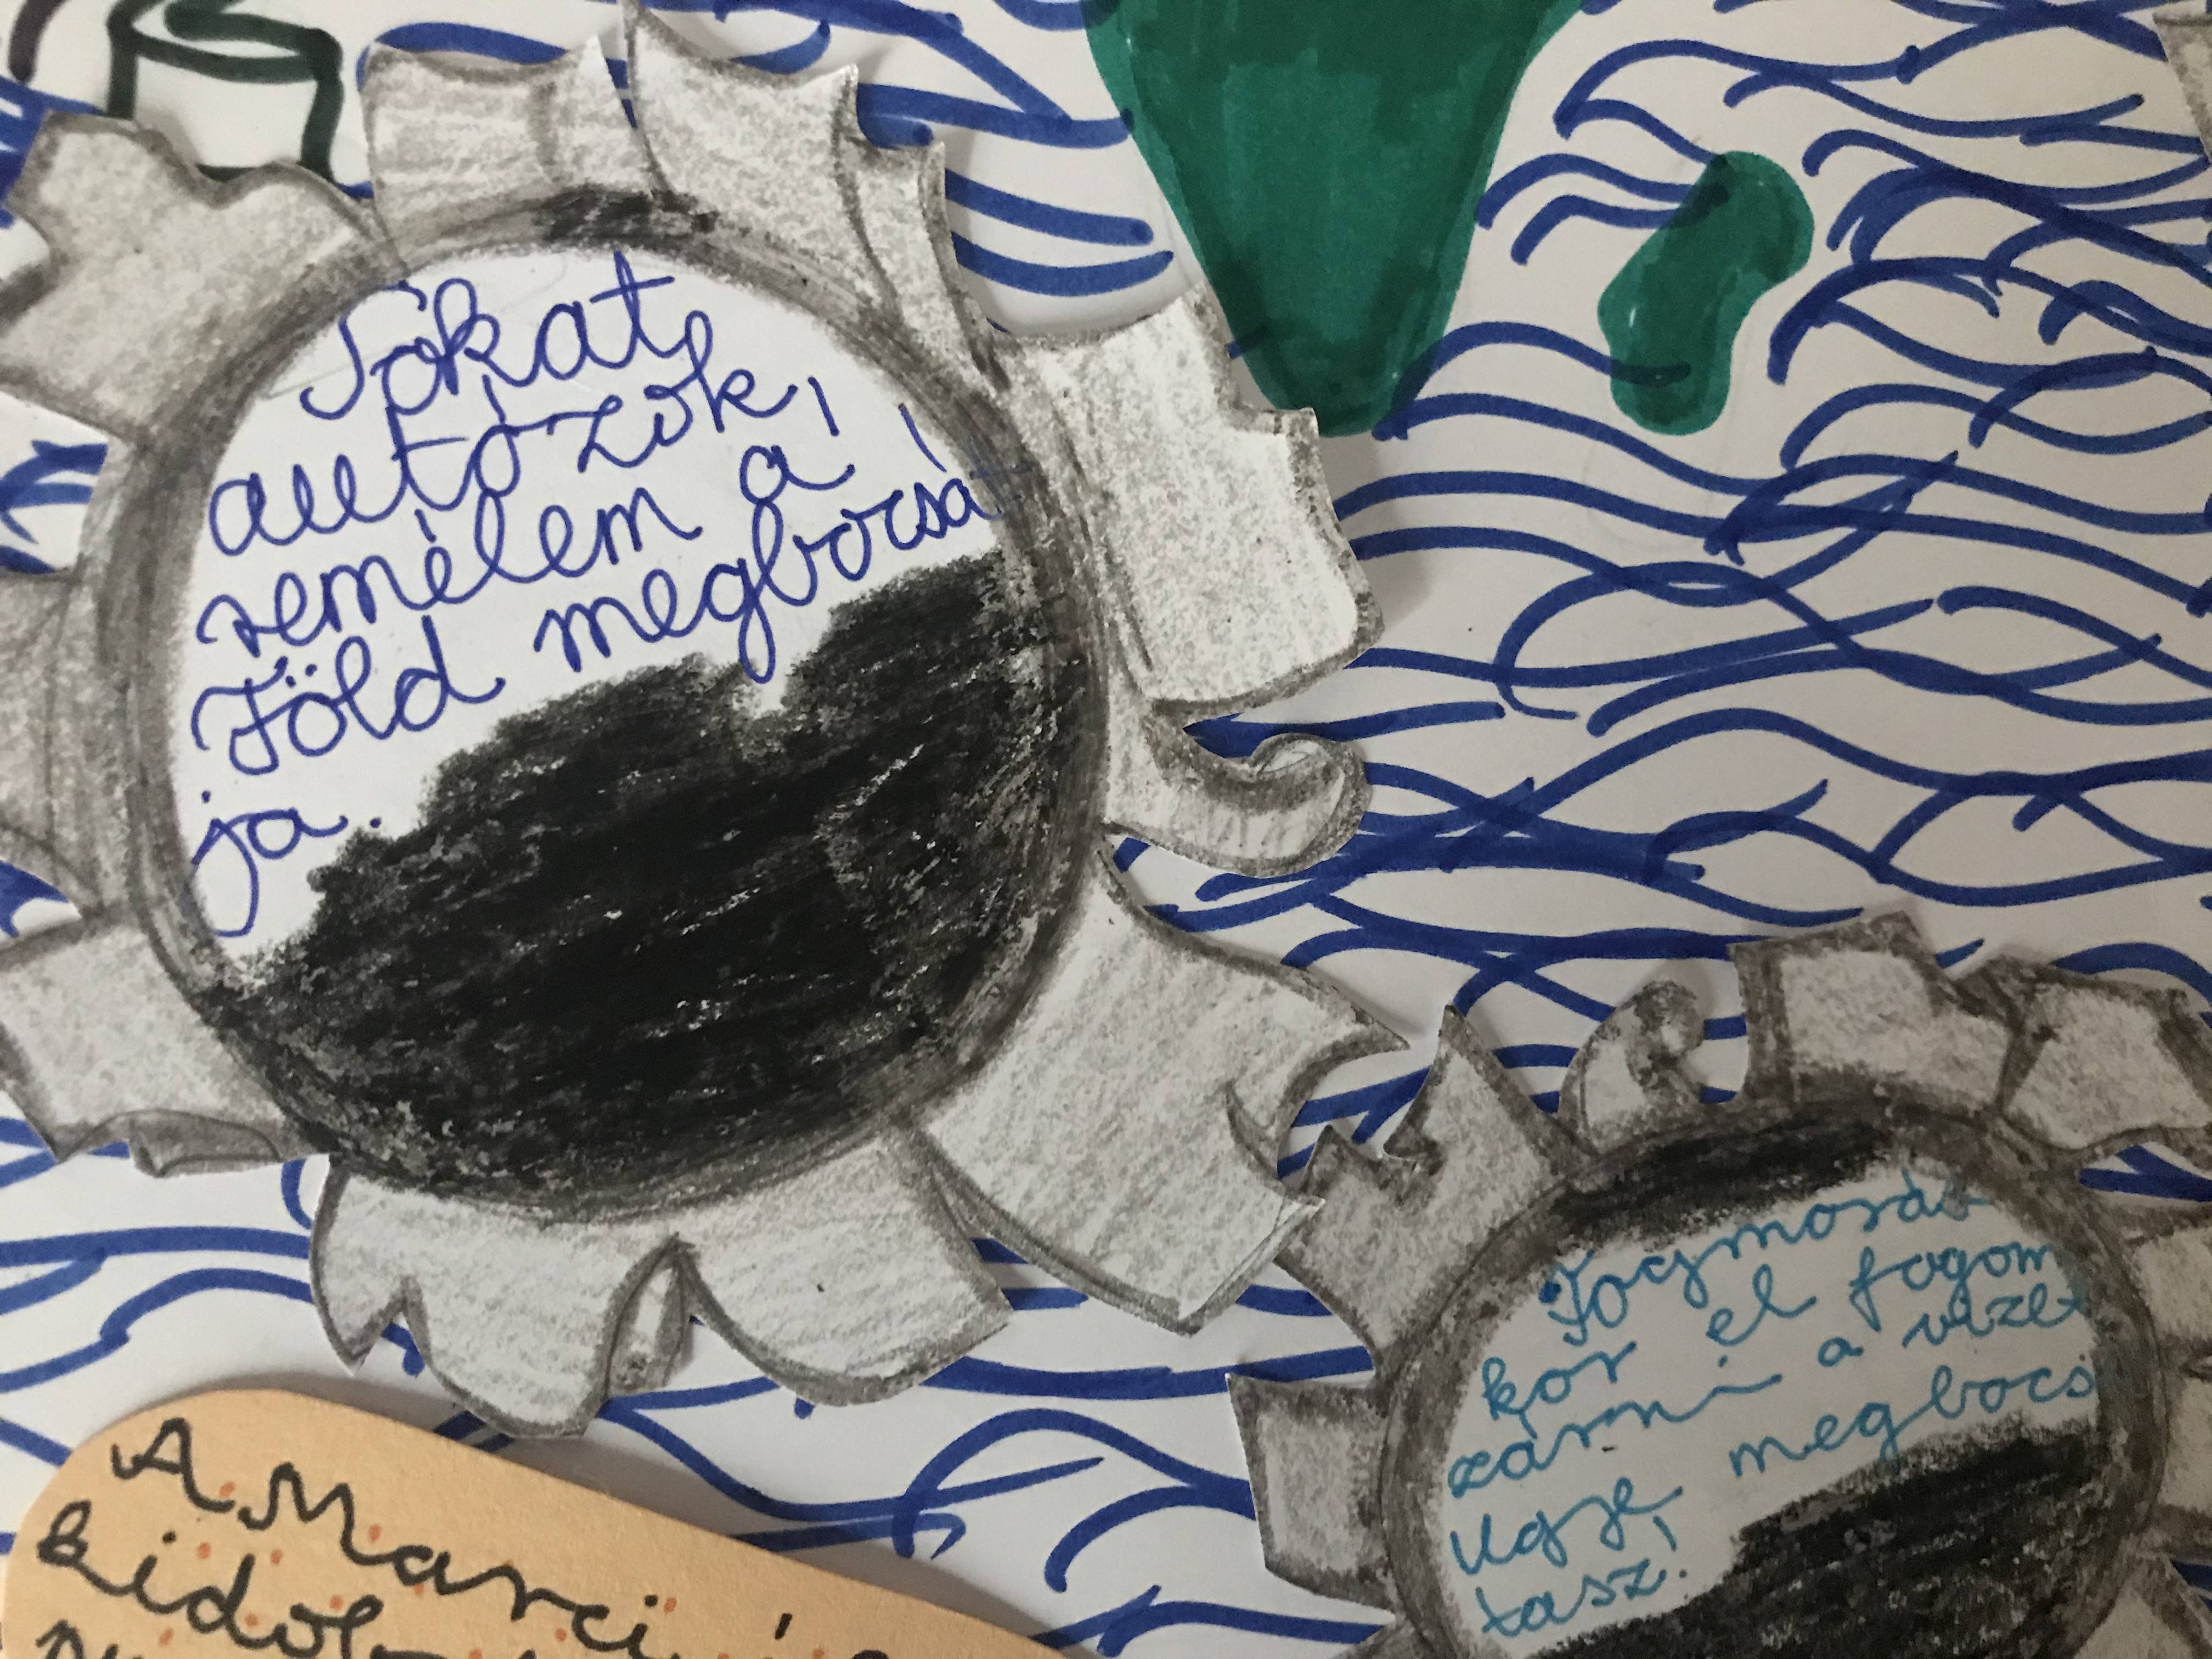 Sokat
autózok,
remélem a
Föld megbocsát
ja.
Fogmosás
kor el fogom
zárni a vizet
Ugye megbocsá
tasz!
A Marci